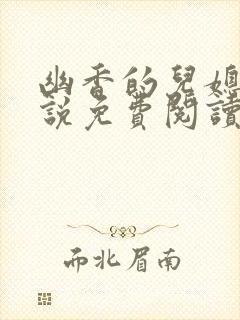 幽香的兒媳
說免費閱讀
而北眉南